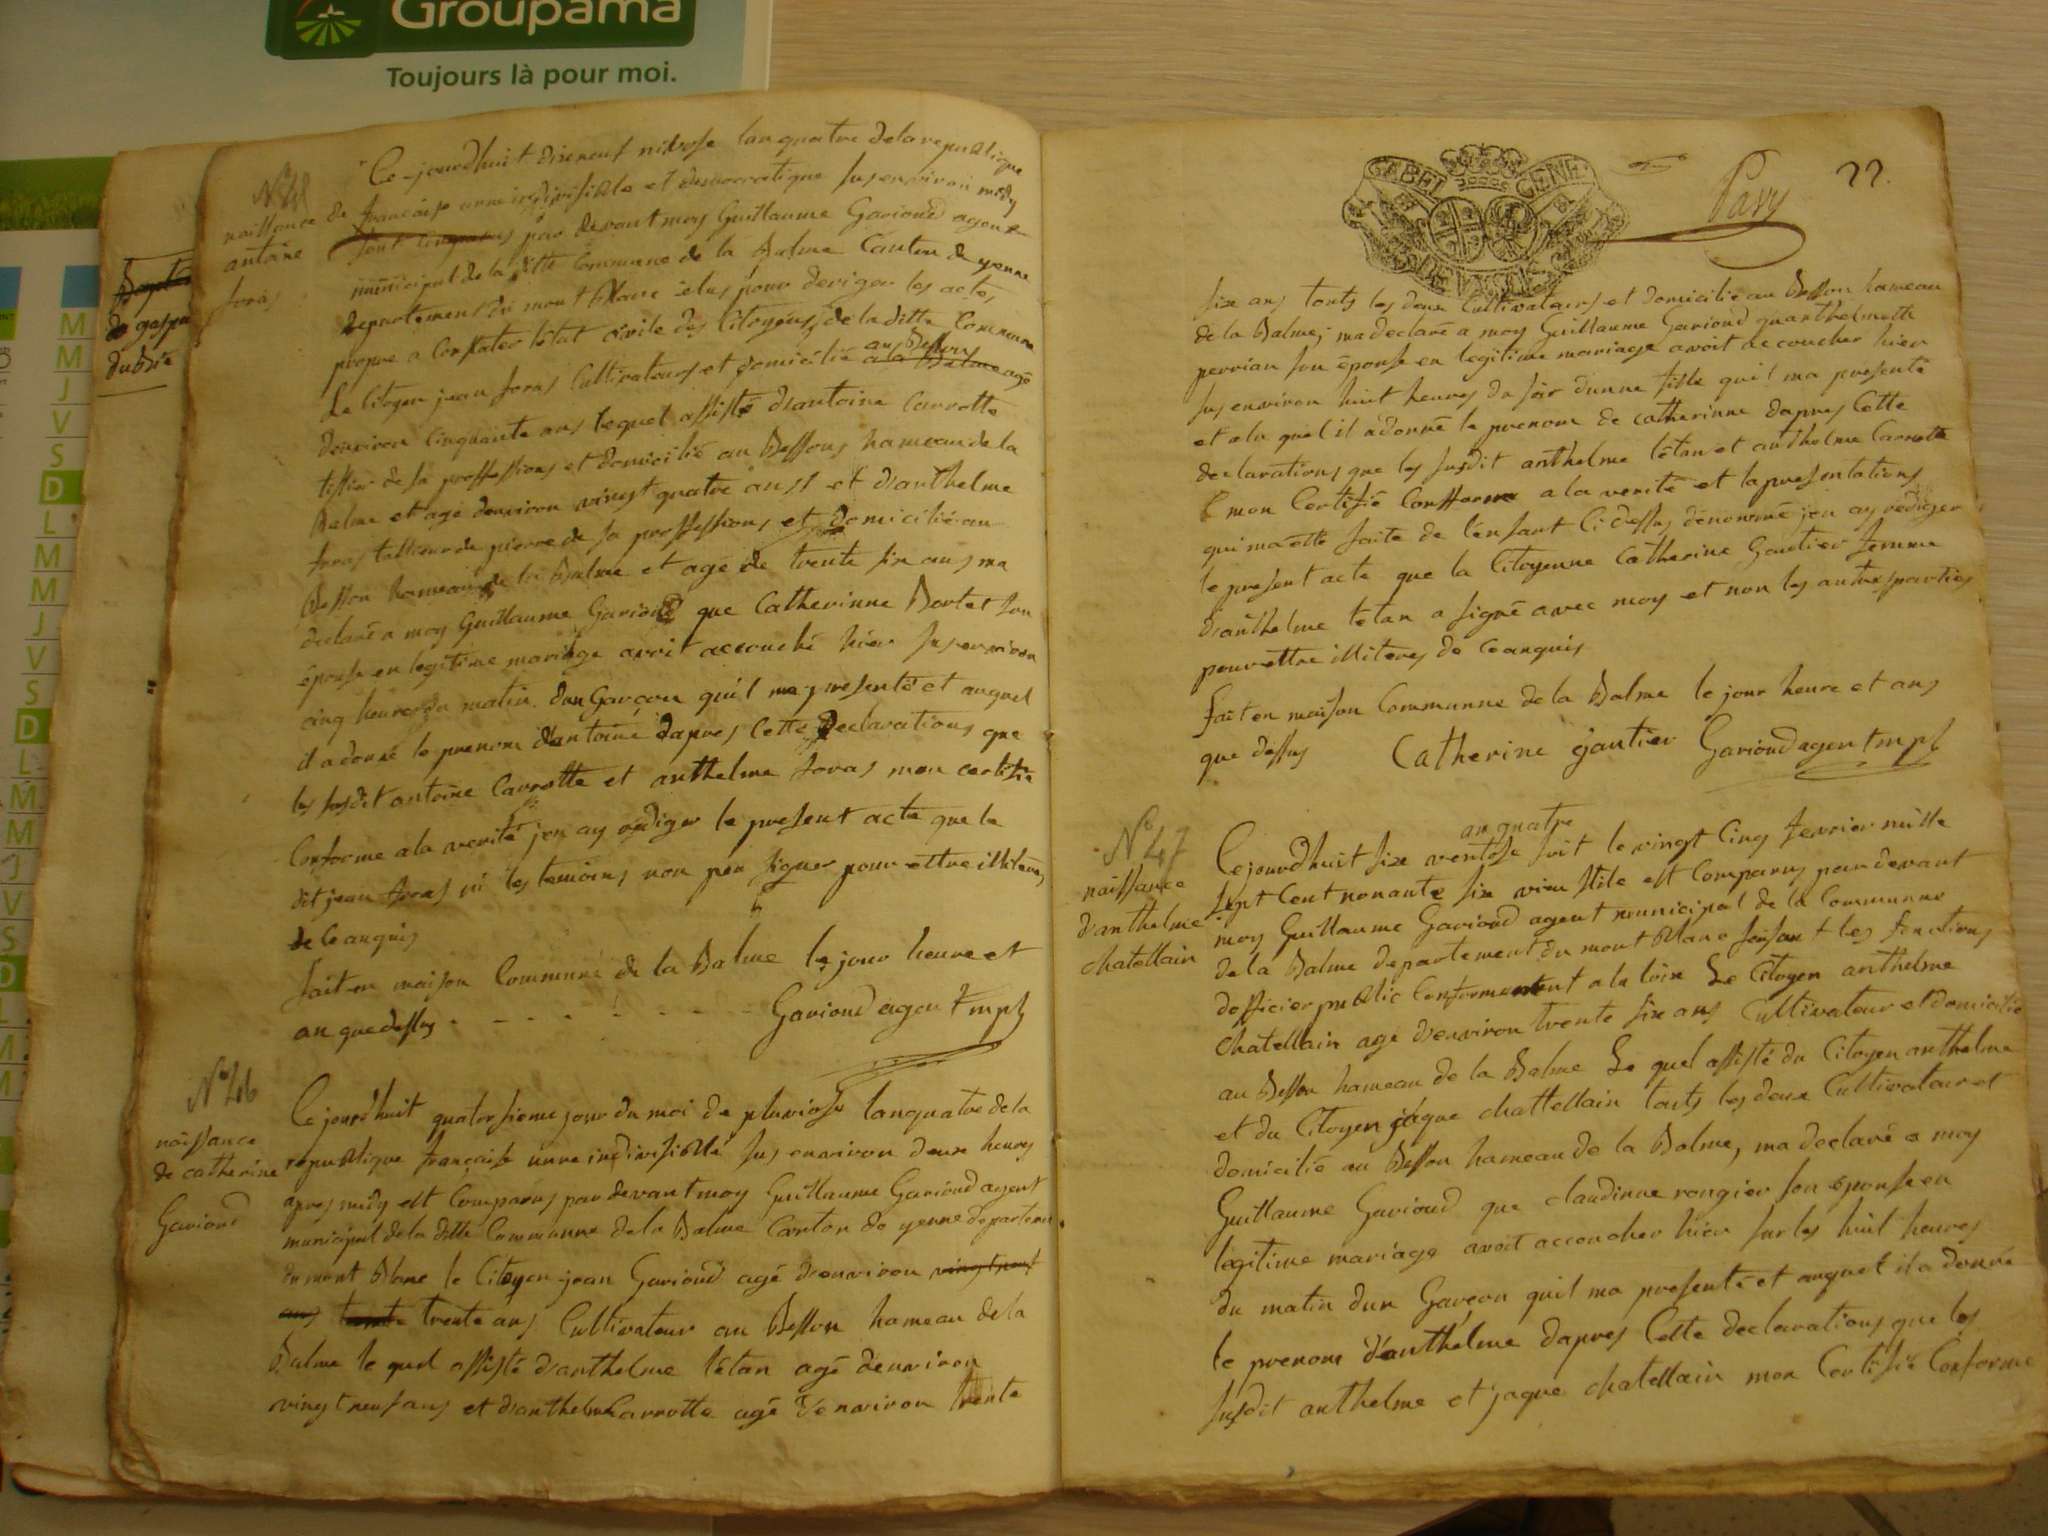 Groupama
Toujours là pour moi.
M
M
J
V
S
D
L
M
M
J
V
S
D
L
M
M
J
V
S
D
L
M
M
N° 45
naissance de
antoine
foras
Ce-jourdhuit dixneuf nivose lan quatre de la republique
francaise unne indivisible et democratique sus environ midy
sont comparus par devant moy Guillaume Garioud agent
municipal de la ditte Commune de la Balme Canton de yenne
departement du mont Blanc élus pour deriger les actes
propre a Constater létat civile des Citoyens de la ditte Commune
au Besson
Le Citoyen jean foras Cultivateurs et domicilié a la Balme agé
denviron Cinquante ans lequel assisté dantoine Carrotte
tissier de sa proffessions et domicilié au Bessons hameau de la
Balme et agé denviron vingt quatre ans et danthelme
foras tallieur de pierre de sa proffessions et domicilié au
Besson hameau de la Balme et agé de trente six ans ma
declaré a moy Guillaume Garioud que Catherinne Bortet son
épouse en legitime mariage avoit accouché hier sus environ
cinq heures du matin dun Garçon quil ma presenté et auquel
il a donné le prenom dantoine dapres Cette declarations que
les susdit antoine Carrotte et anthelme foras mon certifié
Conforme a la verité jen ay rediger le present acte que le
dit jean foras ni les temoins non peu signer pour ettre illiteres
de ce anquis
fait en maison Commune de la Balme le jour heure et
an que dessus - - - - - - - Garioud agent mpl
N° 46
naissance
de catherine
Garioud
Ce jourdhuit quatorsieme jour du moi de pluviose lan quatre de la
republique francaise unne indivisiblle sus environ deux heures
apres midy est Comparus par devant moy Guillaume Garioud agent
municipal de la ditte Commune de la Balme Canton de yenne departement
du mont Blanc le Citoyen jean Garioud agé denviron vingt neuf
ans trente trente ans Cultivateur au Besson hameau de la
Balme le quel assisté danthelme létan agé denviron
vingt neuf ans et danthelme Carrotte agé denviron trente
GABEL GENE
Pavy
22.
six ans touts les deux Cultivateurs et domicilié au Besson hameau
de la Balme; ma declaré a moy Guillaume Garioud quanthelmette
perrian son épouse en legitime mariage avoit accoucher hier
sus environ huit heures du soir dunne fille quil ma presenté
et a la quel il a donné le prenom de catherinne dapres Cette
declarations que les susdit anthelme létan et anthelme Carrotte
mon Certifié Conforme a la verité et la presentations
qui ma etté faite de lénfant Ci dessus dénommé jen ay rédiger
le present acte que la Citoyenne Catherine Gautier femme
danthelme létan a signé avec moy et non les autres parties
pour ettre illiteres de ce anquis
fait en maison Communne de la Balme le jour heure et ans
que dessus Catherine gautier Garioud agent mpl
N° 47
naissance
danthelme
chatellain
an quatre
Cejourdhuit six ventose soit le vingt Cinq fevrier mille
sept Cent nonante six vieu stile est Comparus par devant
moy Guillaume Garioud agent municipal de la Communne
de la Balme departement du mont Blanc faisant les fonctions
dofficier public Conformement a la loix Le Citoyen anthelme
chatellain agé denviron trente six ans Cultivateur et domicilié
au Besson hameau de la Balme Le quel assisté du Citoyen anthelme
et du Citoyen jaque chattellain touts les deux Cultivateur et
domicilié au Besson hameau de la Balme, ma declaré a moy
Guillaume Gavioud que claudinne rongier son épouse en
legitime mariage avoit accoucher hier sur les huit heures
du matin dun Garcon quil ma presenté et auquel il a donné
le prenom d'anthelme dapres Cette declarations que les
susdit anthelme et jaque chatellain mon Certifié Conforme